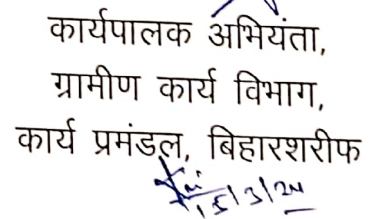 कार्यपालक अभियंता,
ग्रामीण कार्य विभाग,
कार्य प्रमंडल, बिहारशरीफ
15/3/24